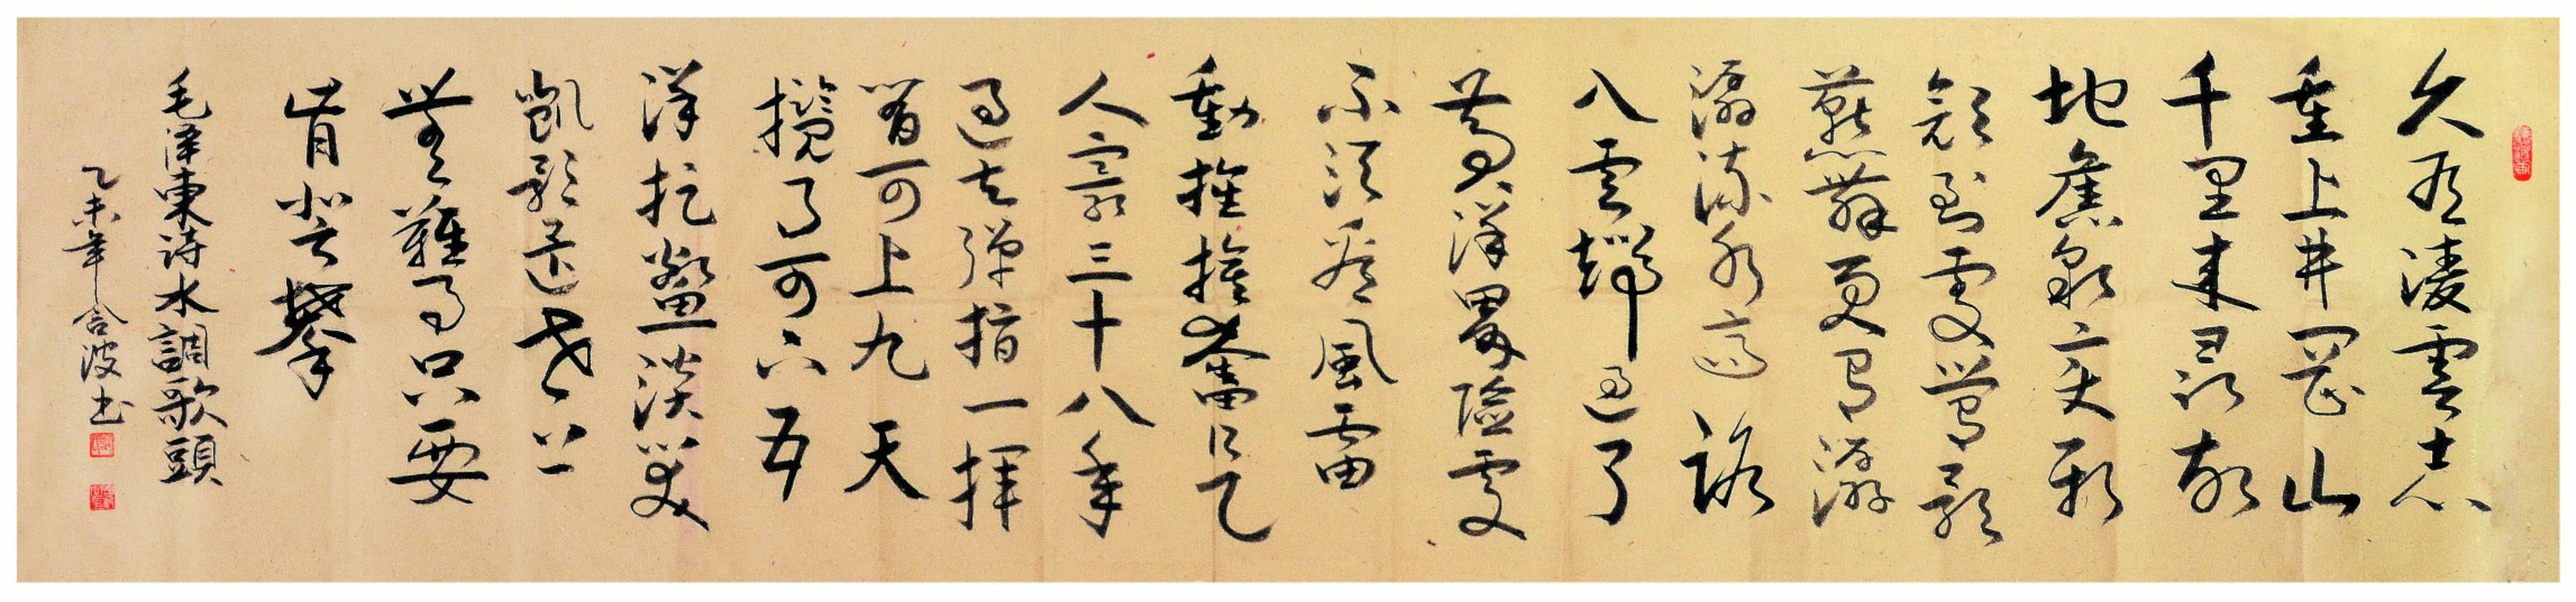 久有淩雲志
重上井岡山
千里來尋故
地舊貌變新
顏到處鶯歌
燕舞更有潺
潺流水高路
入雲端過了
黃洋界險處
不須看風雷
動旌旗奮是
人寰三十八年
過去彈指一揮
間可上九天
攬月可下五
洋捉鱉談笑
凱歌還世上
無難事只要
肯登攀
毛澤東詩水調歌頭
乙未年合波書